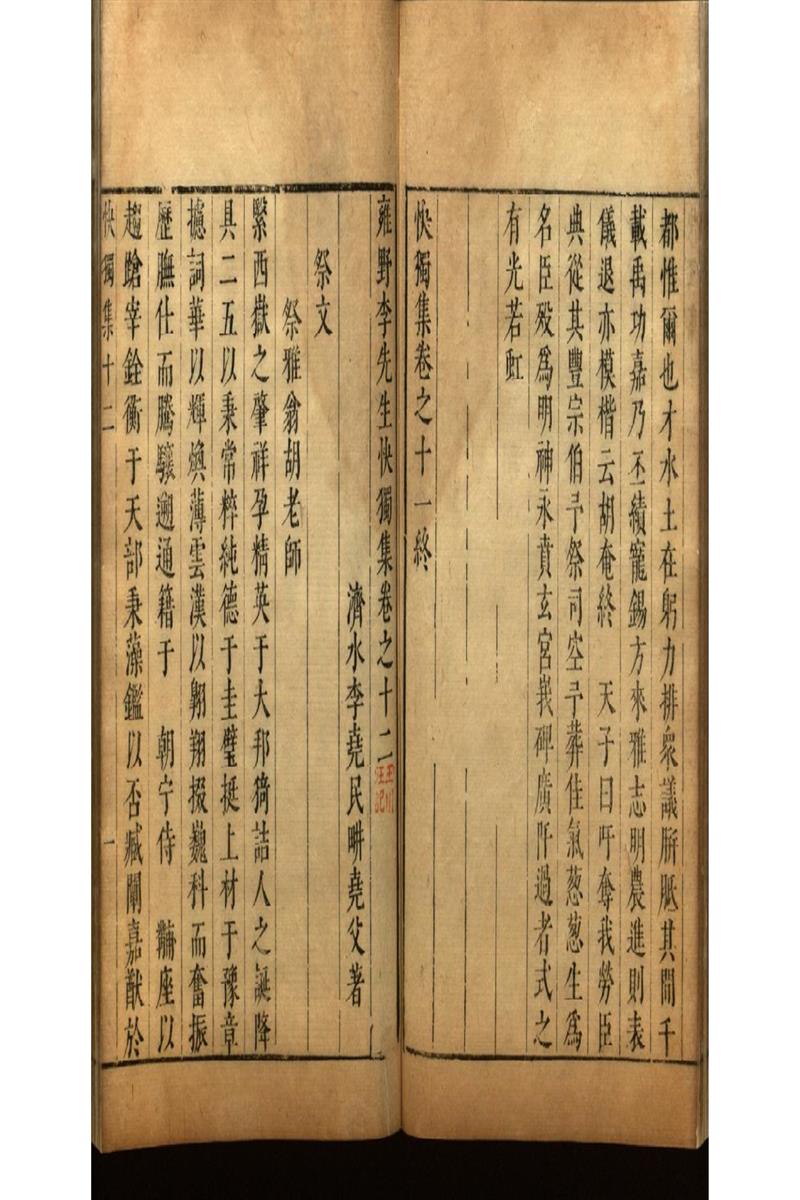 都惟爾也才水土在躬力排衆議胼胝其間千
載禹功嘉乃丕績寵錫方來雅志明農進則表
儀退亦模楷云胡奄終　天子曰吁奪我勞臣
典從其豐宗伯予祭司空予葬佳氣葱葱生爲
名臣殁爲明神永賁玄宮峩碑廣阡過者式之
有光若虹
快獨集卷之十一終
雍野李先生快獨集卷之十二
濟水李堯民畊堯父著
祭文
祭雅翁胡老師
緊西嶽之肇祥孕精英于大邦猗喆人之誕降
具二五以秉常粹純德于圭璧挺上材于豫章
攄詞華以輝煥薄雲漢以翱翔掇巍科而奮振
歷膴仕而騰驤遡通籍于　朝宁侍　黼座以
趨蹌宰銓衡于天部秉藻鑑以否臧闡嘉猷於
快獨集十二　一